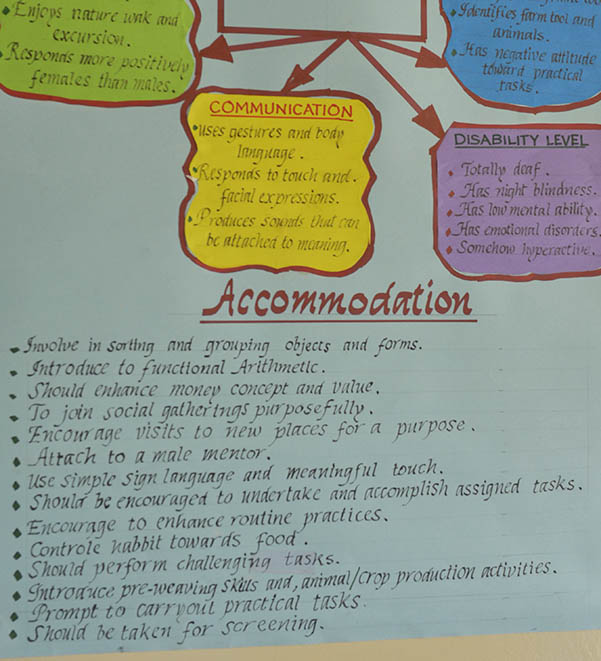 • Enjoys nature wak and
excursion.
• Responds more positively
females than males.
• Identifies farm tool and
animals.
• Has negative attitude
toward practical
tasks.
COMMUNICATION
• uses gestures and body
language.
• Responds to touch and
facial expressions.
• Produces sounds that can
be attached to meaning.
DISABILITY LEVEL
• Totally deaf.
• Has night blindness.
• Has low mental ability.
• Has emotional disorders.
• Somehow hyperactive.
Accommodation
• Involve in sorting and grouping objects and forms.
• Introduce to functional Arithmetic.
• Should enhance money concept and value.
• To join social gatherings purposefully.
• Encourage visits to new places for a purpose.
• Attach to a male mentor.
• use simple sign language and meaningful touch.
• Should be encouraged to undertake and accomplish assigned tasks.
• Encourage to enhance routine practices.
• Controle habbit towards food.
• Should perform challenging tasks.
• Introduce pre-weaving skills and, animal/crop production activities.
• Prompt to carryout practical tasks.
• Should be taken for screening.